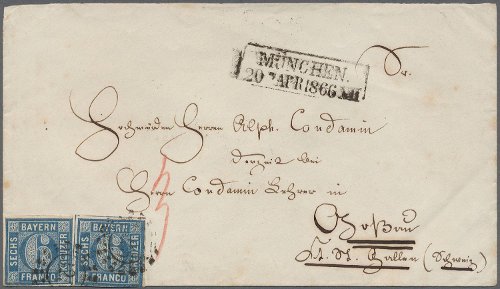 MÜNCHEN.
20 APR 1866 XII
Sr.
Hochwürden Herrn Alph. Condamin
derzeit bei
Herrn Condamin Lehrer in
Goßau
Kt. St. Gallen (Schweiz)
BAYERN
SECHS
6
KREUZER
FRANCO
BAYERN
SECHS
6
KREUZER
FRANCO